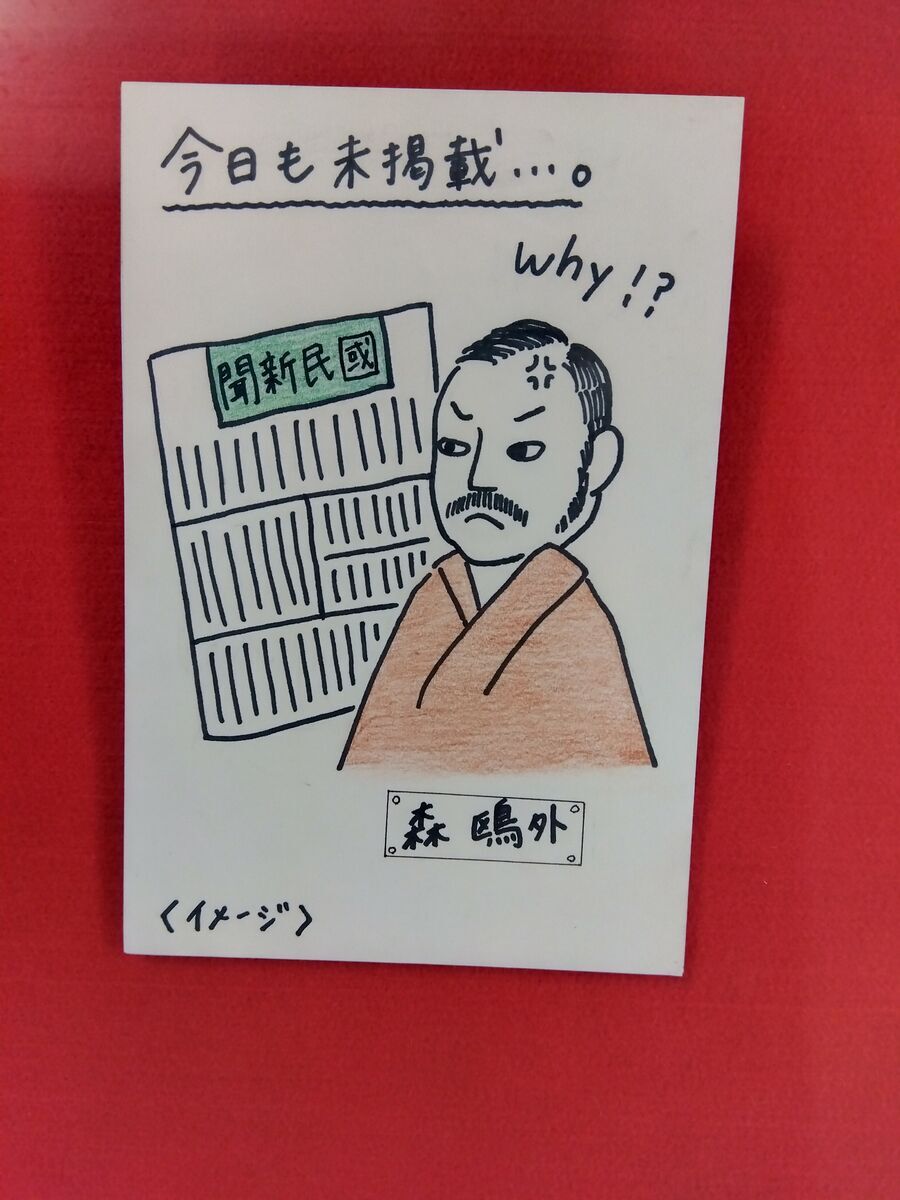 今日も未掲載…。
why!?
聞新民國
森鷗外
〈イメージ〉